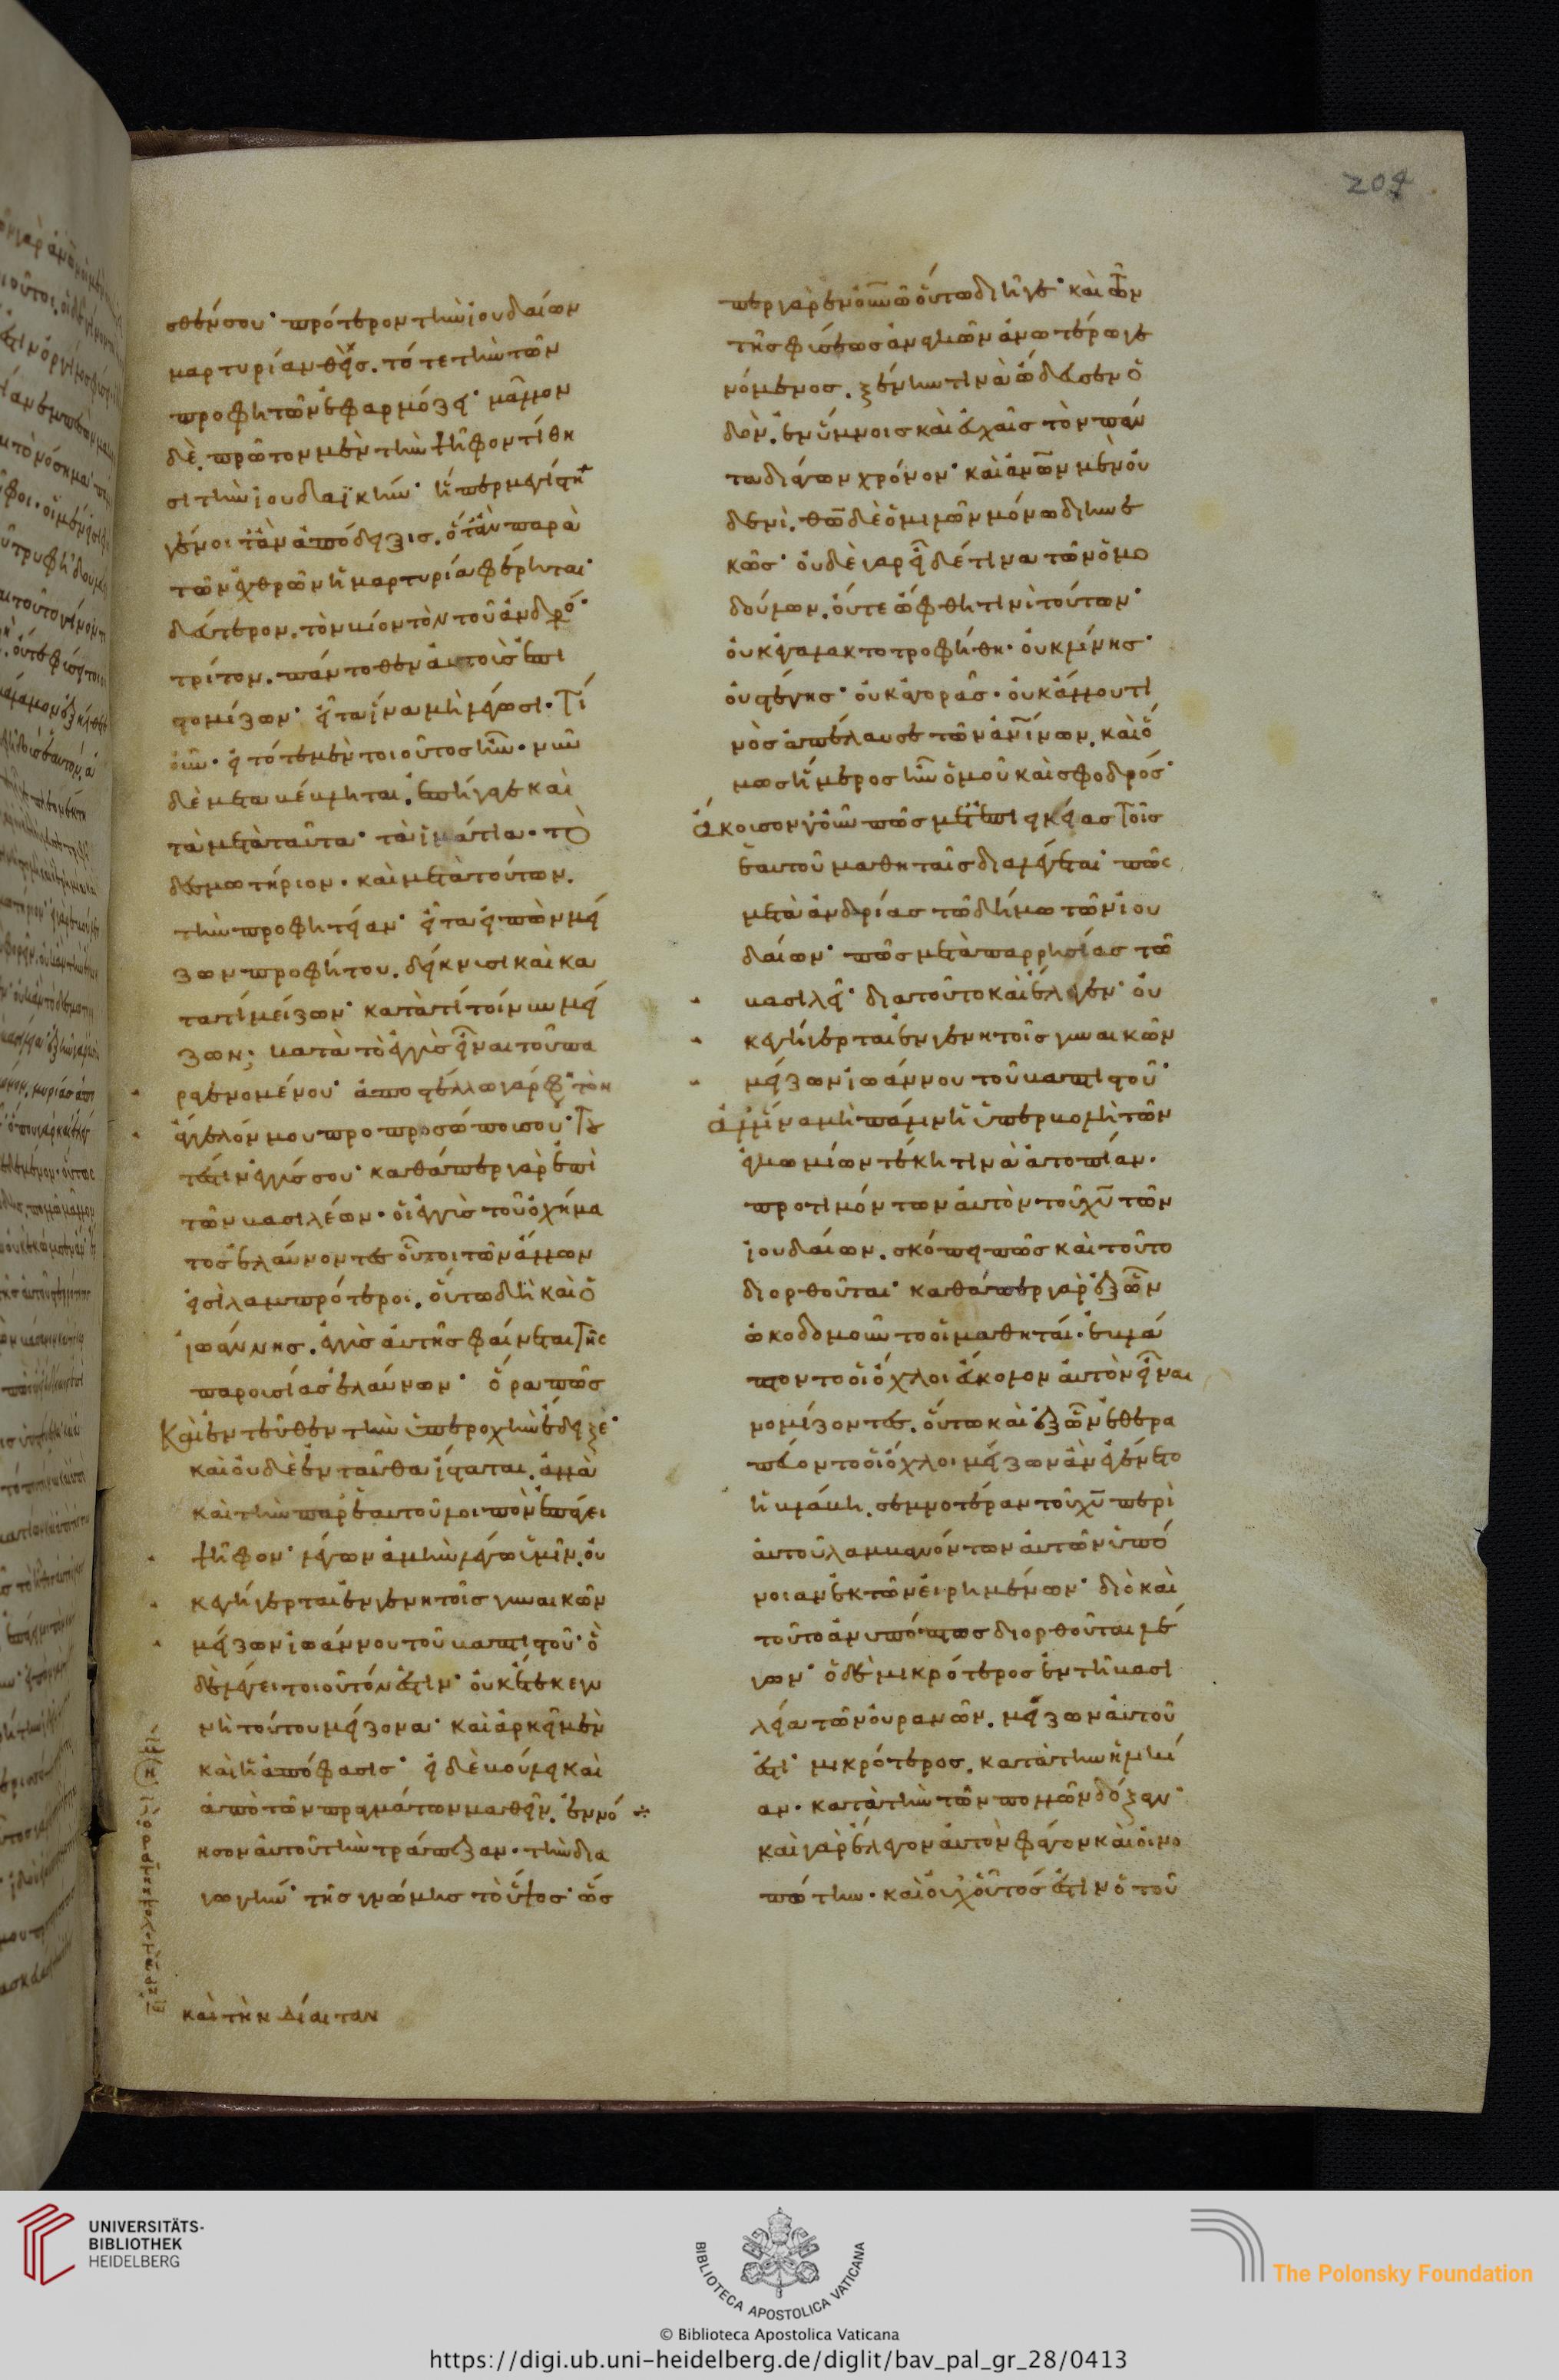 σθένσου· πρότερον τὴν ἰουδαίων
μαρτυρίαν θεὶς. τότε τὴν τῶν
προφητῶν ἐφαρμόζει· μᾶλλον
δὲ. πρῶτον μὲν τὴν ψῆφον τίθη
σι τὴν ἰουδαϊκὴν· ἥπερ μεγίστη
γένοιτ' ἂν ἀπόδειξις. ὅταν παρὰ
τῶν ἐχθρῶν ἡ μαρτυρία φέρηται·
δεύτερον. τὸν βίον τὸν τοῦ ἀνδρό·
τρίτον. πάντοθεν αὐτοὺς ἐπι
στομίζων· εἶτα ἵνα μὴ λέγωσι. τί
οὖν· εἰ τότε μὲν τοιοῦτος ἦν. νῦν
δὲ μεταβέβληται. ἐπήγαγε καὶ
τὰ μετὰ ταῦτα· τὰ ἱμάτια. τὸ
δεσμωτήριον. καὶ μετὰ τούτων.
τὴν προφητείαν· εἶτα εἰπὼν μεί
ζων προφήτου. δείκνυσι καὶ κα
τατί μείζων· κατὰ τί τοίνυν μεί
ζων; κατὰ τὸ ἐγγὺς εἶναι τοῦ πα
ραγενομένου· ἀποστέλλω γάρ φησι τὸν
ἄγγελόν μου πρὸ προσώπου σου· του
τέστιν ἐγγύς σου· καθάπερ γὰρ ἐπὶ
τῶν βασιλέων. οἱ ἐγγὺς τοῦ ὀχήμα
τος ἐλαύνοντες οὗτοι τῶν ἄλλων
εἰσὶ λαμπρότεροι. οὕτω δὴ καὶ ὁ
ἰωάννης. ἐγγὺς αὐτῆς φαίνεται τῆς
παρουσίας ἐλαύνων· ὅρα πῶς
καὶ ἐντεῦθεν τὴν ὑπεροχὴν ἔδειξε·
καὶ οὐδὲ ἐνταῦθα ἵσταται. ἀλλὰ
καὶ τὴν παρ' ἑαυτοῦ λοιπὸν ἐπάγει
ψῆφον· λέγων ἀμὴν λέγω ὑμῖν. οὐ
κ ἐγήγερται ἐν γεννητοῖς γυναικῶν
μείζων ἰωάννου τοῦ βαπτιστοῦ· ὃ
δὲ λέγει τοιοῦτόν ἐστιν· οὐκ ἔτεκε γυ
νὴ τούτου μείζονα· καὶ ἀρκεῖ μὲν
καὶ ἡ ἀπόφασις· εἰ δὲ βούλει καὶ
ἀπὸ τῶν πραγμάτων μαθεῖν. ἐννό
ησον αὐτοῦ τὴν τράπεζαν. τὴν δια
γωγὴν· τῆς γνώμης τὸ ὕψος· ὥσ
καὶ τὴν δίαιταν
περ γὰρ ἐν οὐνῶ οὕτω διῆγε· καὶ τῶν
τῆς φύσεως ἀναγκῶν ἀνωτέρω γε
νόμενος. ξένην τινὰ ὥδευσεν ὁ
δὸν. ἐν ὕμνοις καὶ εὐχαῖς τὸν πάν
τα διάγων χρόνον· καὶ ἀνων μὲν οὐ
δενὶ. θω δὲ ὁμιλῶν μόνω διηνε
κῶς· οὐδὲ γὰρ εἶδέ τινα τῶν ὁμο
δούλων. οὔτε ὤφθη τινὶ τούτων·
οὐκ ἐγαλακτοτροφήθη. οὐ κλίνης·
οὐ στέγης· οὐκ ἀγορᾶς. οὐκ ἄλλου τι
νὸς ἀπέλαυσε τῶν ἀνίνων. καὶ ὅ
μως ἥμερος ἦν ὁμοῦ καὶ σφοδρός·
ἄκουσον γοῦν πῶς μετ' ἐπιεικείας τοῖς
ἑαυτοῦ μαθηταῖς διαλέγεται· πῶς
μετὰ ἀνδρίας τῶ δήμω τῶν ἰου
δαίων· πῶς μετὰ παρρησίας τῶ
βασιλεῖ· διατοῦτο καὶ ἔλεγεν· οὐ
κ ἐγήγερται ἐν γεννητοῖς γυναικῶν
μείζων ἰωάννου τοῦ βαπτιστοῦ·
ἀλλ' ἵνα μὴ πάλιν ἡ ὑπερβολὴ τῶν
ἐγκωμίων τέκη τινὰ ἀτοπίαν.
προτιμόντων αὐτὸν τοῦ χυ τῶν
ἰουδαίων. σκόπει πῶς καὶ τοῦτο
διορθοῦται· καθάπερ γὰρ ἐξ ὧν
ὠκοδομοῦντο οἱ μαθηταί. ἐβλά
πτοντο οἱ ὄχλοι εὔκολον αὐτὸν εἶναι
νομίζοντες. οὕτω καὶ ἐξ ὧν ἐθερα
πεύοντο οἱ ὄχλοι μείζων ἂν ἐγένετο
ἡ βλάβη. σεμνοτέραν τοῦ χυ περὶ
αὐτοῦ λαμβανόντων αὐτῶν ὑπό
νοιαν ἐκ τῶν εἰρημένων· διὸ καὶ
τοῦτο ἀνυπόπτως διορθοῦται λέ
γων· ὁ δὲ μικρότερος ἐν τῆ βασι
λεία τῶν οὐρανῶν. μείζων αὐτοῦ
ἐστι· μικρότερος. κατὰ τὴν ἡλικί
αν. κατὰ τὴν τῶν πολλῶν δόξαν·
καὶ γὰρ ἔλεγον αὐτὸν φάγον καὶ οἰνο
πότην. καὶ οὐχ οὗτός ἐστιν ὁ τοῦ
204
UNIVERSITÄTS-
BIBLIOTHEK
HEIDELBERG
BIBLIOTECA APOSTOLICA VATICANA
The Polonsky Foundation
© Biblioteca Apostolica Vaticana
https://digi.ub.uni-heidelberg.de/diglit/bav_pal_gr_28/0413